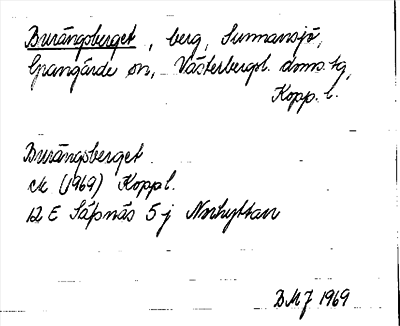 Burängsberget, berg, Sunnansjö,
Grangärde sn, Västerbergsl. doms.tg,
Kopp. l.
Burängsberget
ek (1969) Koppl.
12 E Säfsnäs 5 j Norhyttan
BMJ 1969